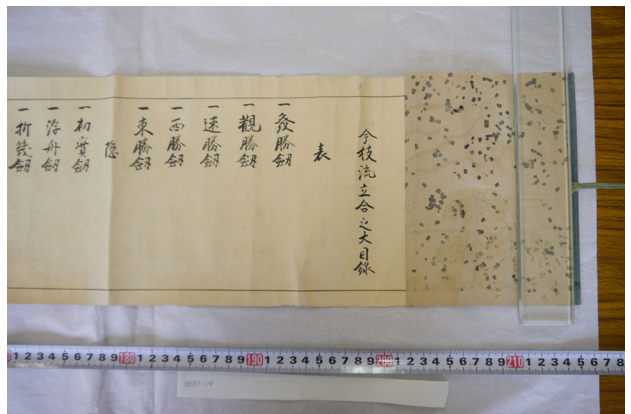 今枝流立合之大目錄
表
一發勝劔
一觀勝劔
一速勝劔
一西勝劔
一東勝劔
隠
一初實劔
一浮舟劔
一折甤劔
1 2 3 4 5 6 7 8 9 180 1 2 3 4 5 6 7 8 9 190 1 2 3 4 5 6 7 8 9 200 1 2 3 4 5 6 7 8 9 210 1 2 3 4 5 6 7 8